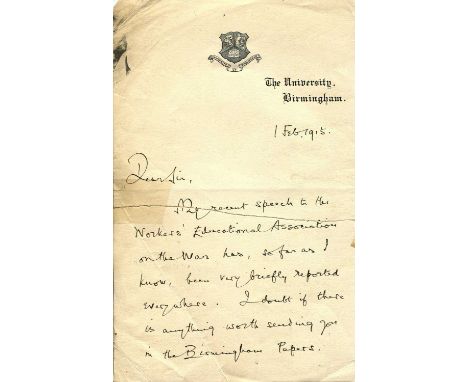 The University,
Birmingham.
1 Feb, 1915.
Dear Sir,
My recent speech to the
Workers' Educational Association
on the War has, so far as I
know, been very briefly reported
everywhere. I doubt if there
is anything worth sending you
in the Birmingham Papers.